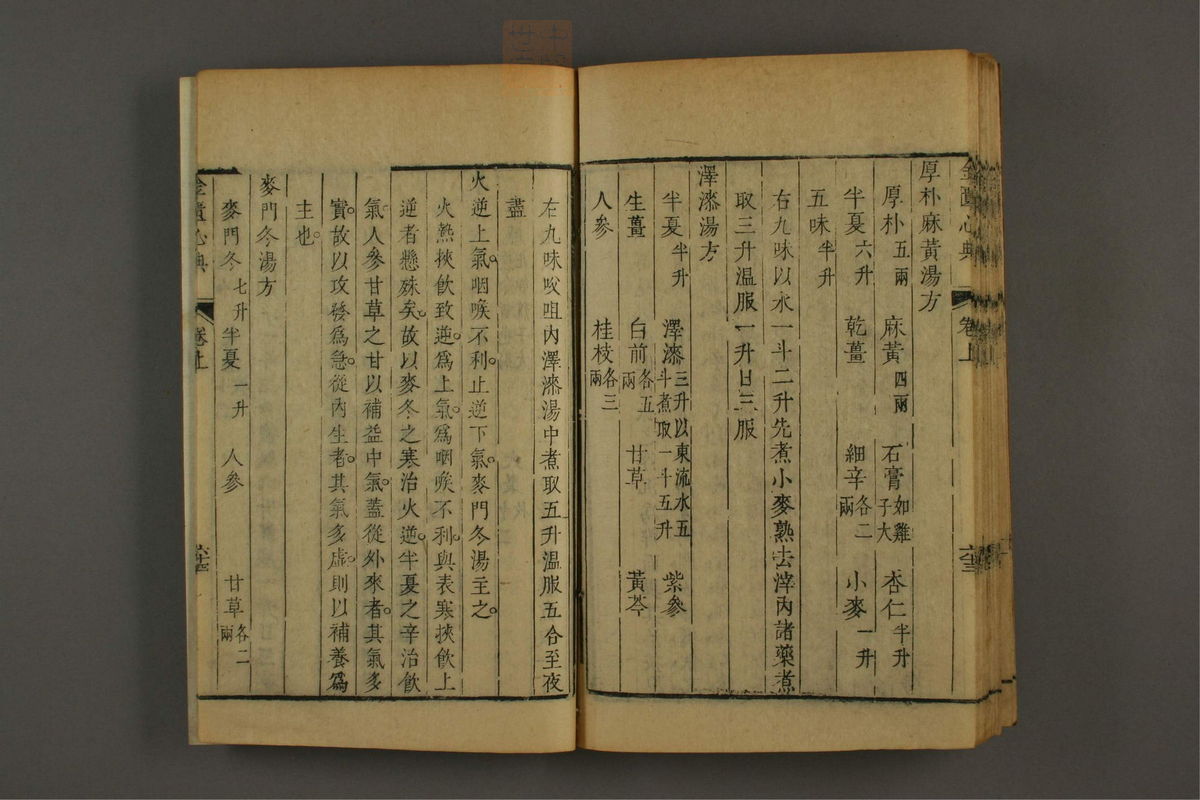 金匱心典
卷上
六十三
厚朴麻黃湯方
厚朴五兩 麻黃四兩 石膏如雞子大 杏仁半升
半夏六升 乾薑 細辛各二兩 小麥一升
五味半升
右九味以水一斗二升先煮小麥熟去滓內諸藥煮
取三升溫服一升日三服
澤漆湯方
半夏半升 澤漆三升以東流水五斗煮取一斗五升 紫參
生薑 白前各五兩 甘草 黃芩
人參 桂枝各三兩
右九味㕮咀內澤漆湯中煮取五升溫服五合至夜
盡
火逆上氣咽喉不利止逆下氣麥門冬湯主之
火熱挾飲致逆爲上氣爲咽喉不利與表寒挾飲上
逆者懸殊矣故以麥冬之寒治火逆半夏之辛治飲
氣人參甘草之甘以補益中氣蓋從外來者其氣多
實故以攻發爲急從內生者其氣多虛則以補養爲
主也
麥門冬湯方
麥門冬七升 半夏一升 人參 甘草各二兩
金匱心典
卷上
六十三